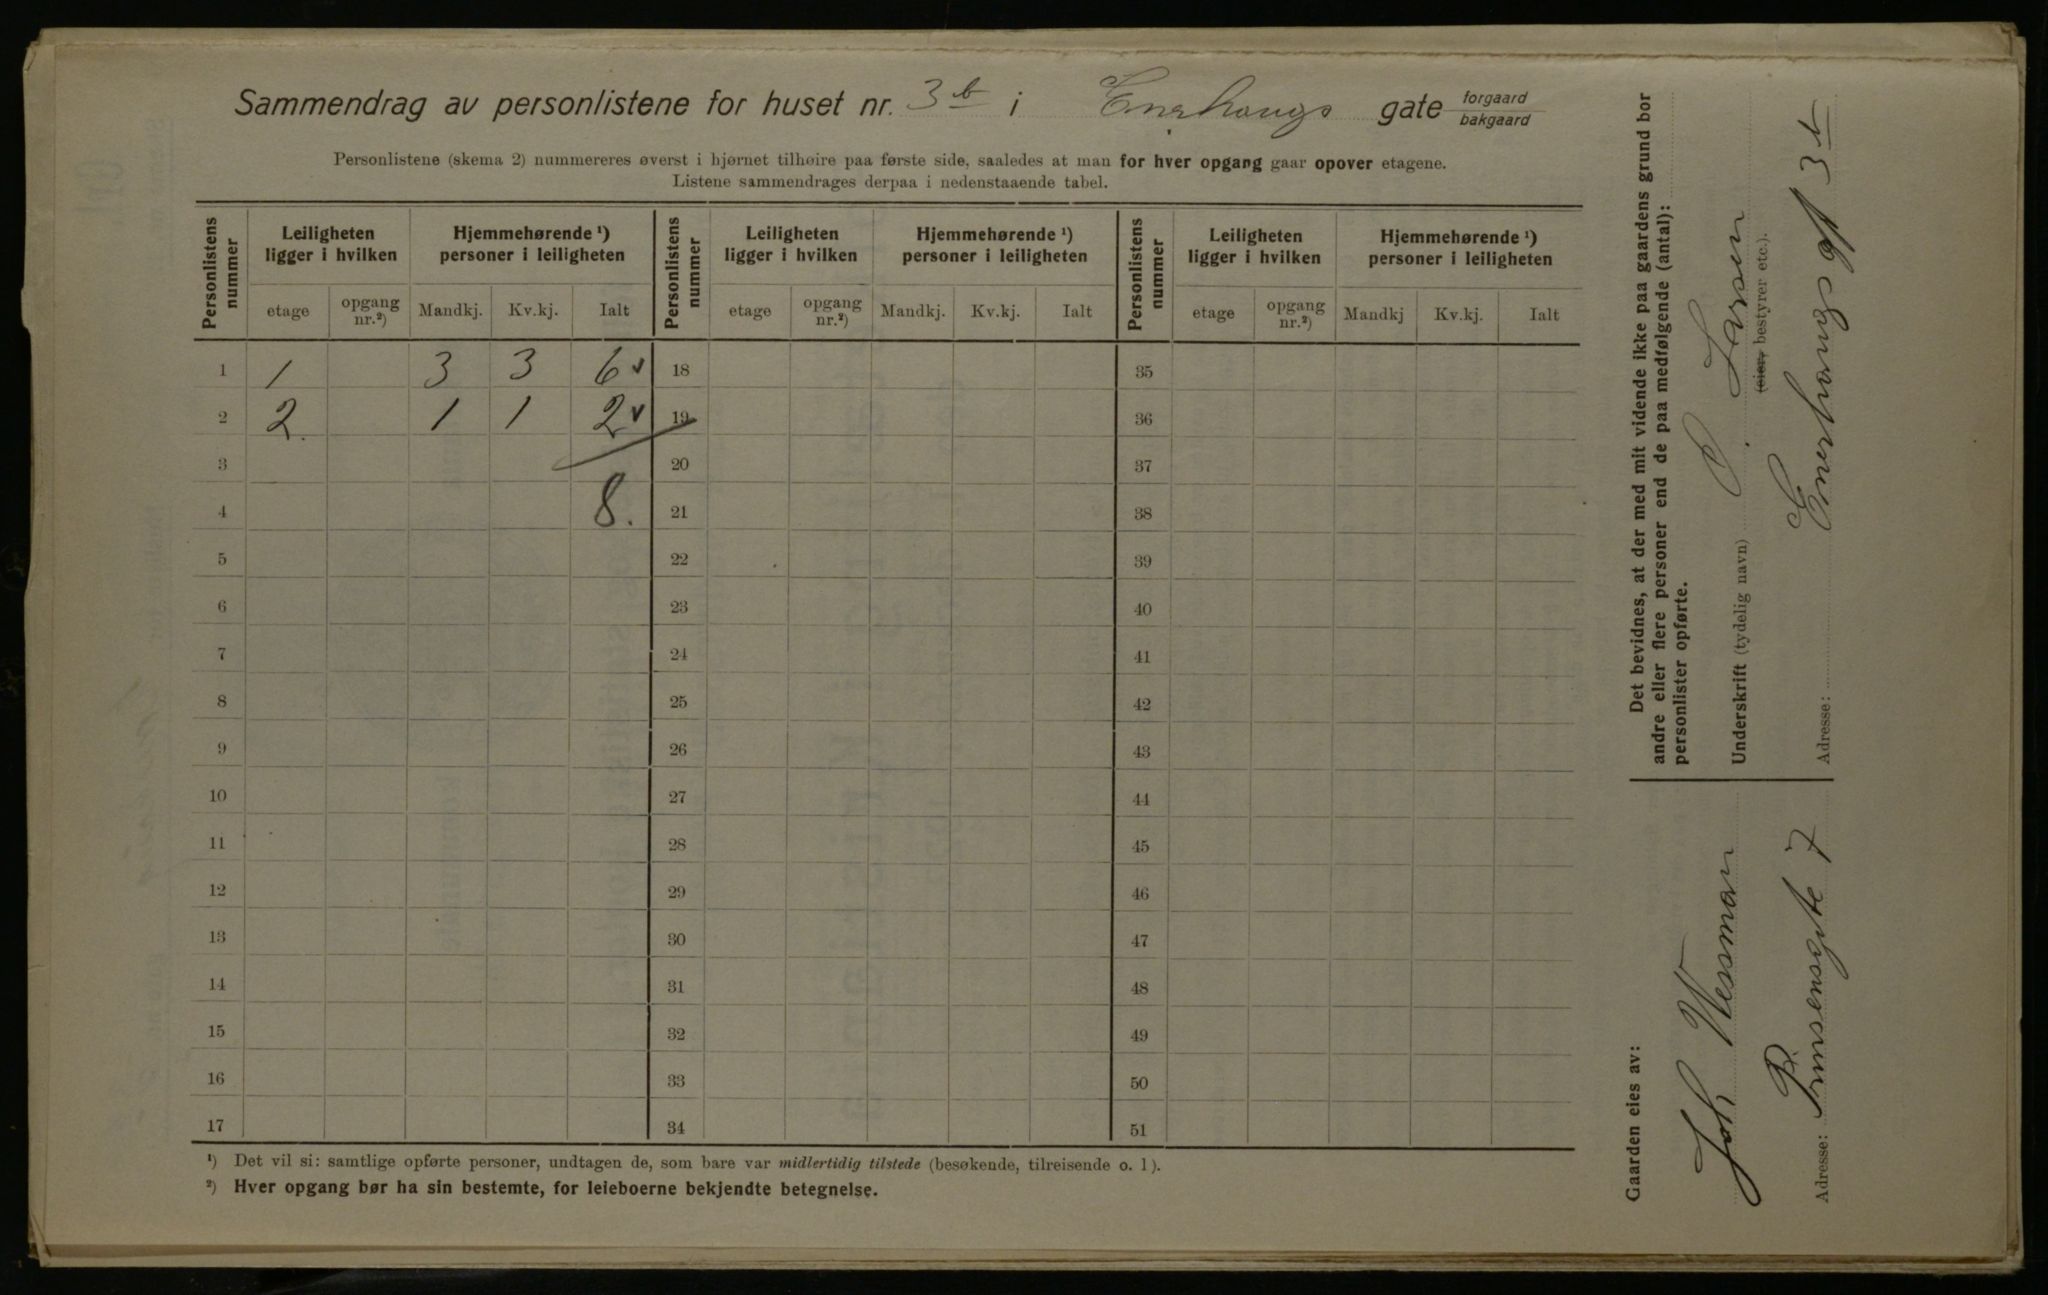 Sammendrag av personlistene for huset nr. 3 b i Enerhaugs gate forgaard bakgaard
Personlistene (skema 2) nummereres øverst i hjørnet tilhøire paa første side, saaledes at man for hver opgang gaar opover etagene.
Listene sammendrages derpaa i nedenstaaende tabel.
Personlistens nummer
Leiligheten ligger i hvilken
Hjemmehørende ¹) personer i leiligheten
Personlistens nummer
Leiligheten ligger i hvilken
Hjemmehørende ¹) personer i leiligheten
Personlistens nummer
Leiligheten ligger i hvilken
Hjemmehørende ¹) personer i leiligheten
etage opgang nr.²) Mandkj. Kv.kj. Ialt etage opgang nr.²) Mandkj. Kv.kj. Ialt etage opgang nr.²) Mandkj Kv.kj. Ialt
1 1 3 3 6 18 35
2 2 1 1 2 19 36
3 20 37
4 8. 21 38
5 22 39
6 23 40
7 24 41
8 25 42
9 26 43
10 27 44
11 28 45
12 29 46
13 30 47
14 31 48
15 32 49
16 33 50
17 34 51
¹) Det vil si: samtlige opførte personer, undtagen de, som bare var midlertidig tilstede (besøkende, tilreisende o. l).
²) Hver opgang bør ha sin bestemte, for leieboerne bekjendte betegnelse.
Det bevidnes, at der med mit vidende ikke paa gaardens grund bor
andre eller flere personer end de paa medfølgende (antal):
personlister opførte.
Underskrift (tydelig navn) O. Larsen
(eier, bestyrer etc.).
Adresse: Enerhaugs gt 3 b
Gaarden eies av:
Joh Wessman
Adresse: Prinsensgate 7